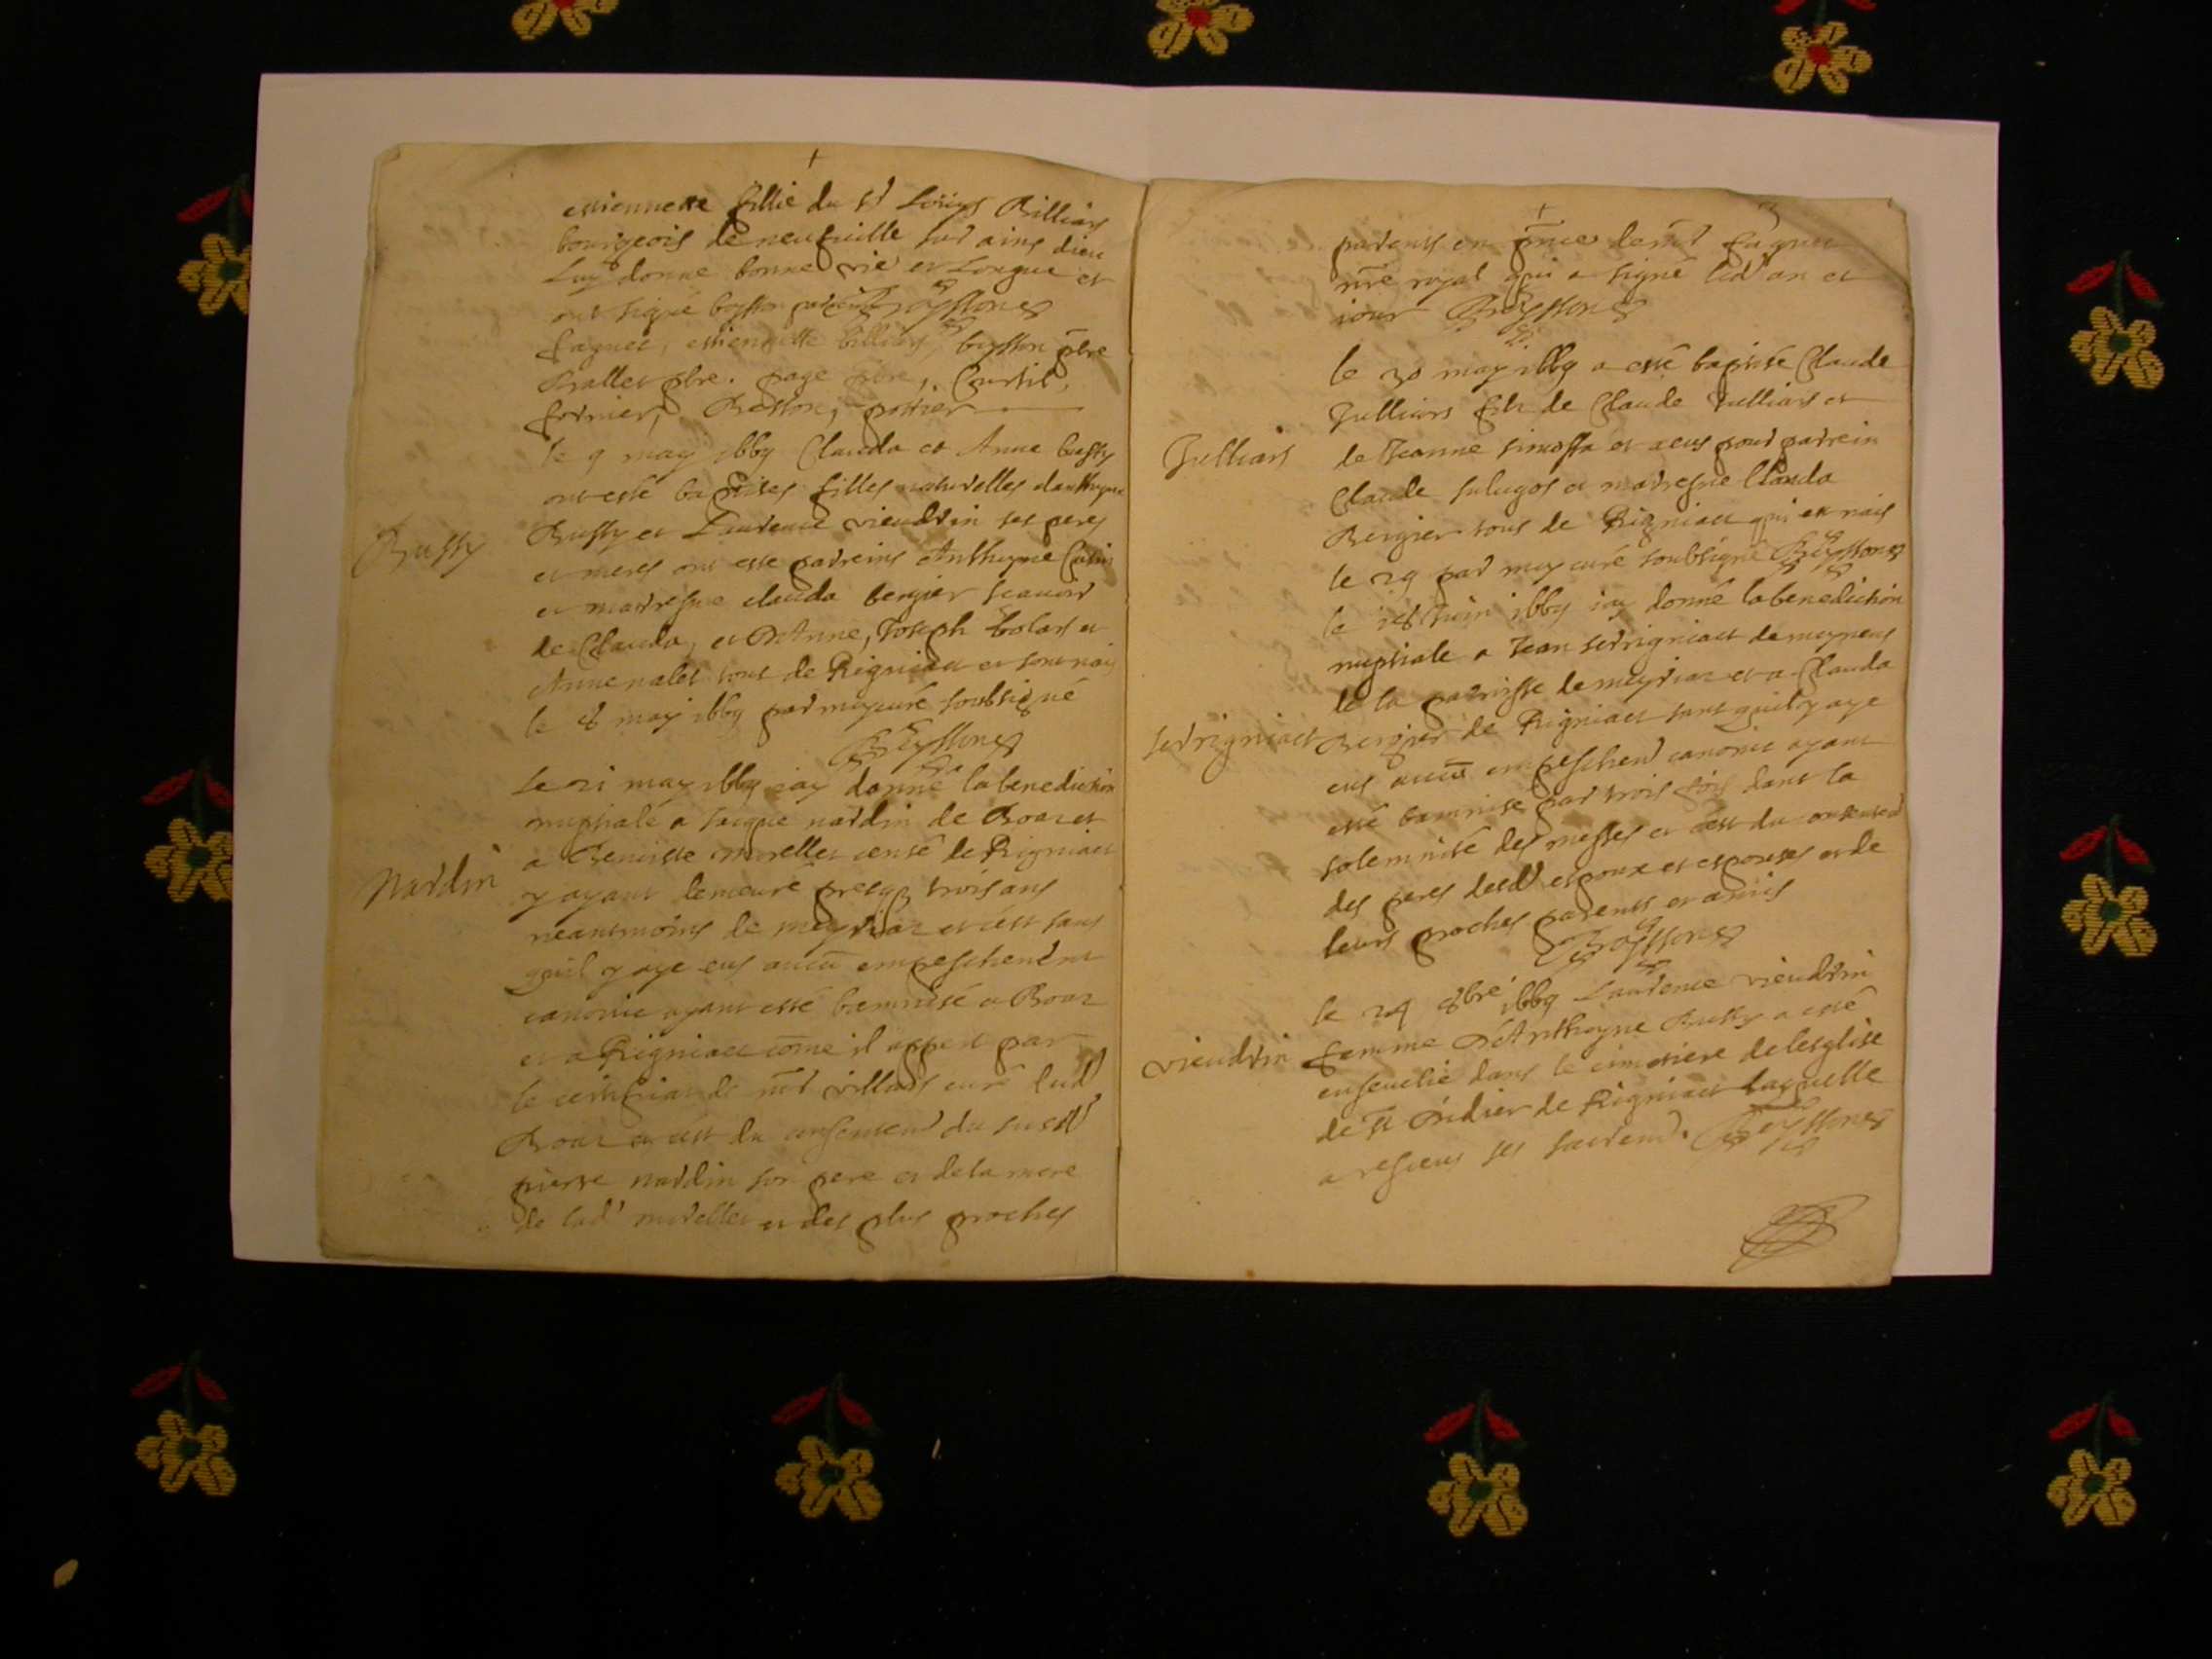 estiennette fillie du sr Loüys Billiars
bourgeois de neufuille sur ains dieu
luy donne bonne vie et longue et
ont signé
faguet, estiennette billiars, buysson pbre
Ballet pbre. page pbre, Curtil,
fornier, Beston, pottier
le 9 may 1669 Clauda et Anne bussy
ont esté baptises filles naturelles danthoyne
Bussy
Bussy et Laurence vieudrin ses peres
et meres ont esté parreins Anthoyne
et marresne clauda bergier scauoir
de Clauda, et D'Anne, Joseph et
Anne nalet tous de Rigniacc et sont nais
le 8 may 1669 par moy curé soubsigné
le 21 may 1669 iay donné la benediction
nuptiale a Jacque nardin de Boaz et
Nardin
a Benoiste morellet censé de Rigniacc
y ayant demeuré presq trois ans
neantmoins de meyriaz et c'est sans
quil y aye eus aucū empeschement
canonic ayant esté bannisé a Boaz
et a Rigniacc come il appert par
le certificat de mr villars curé dud
Boaz et c'est du consentent du susdt
pierre nardin son pere et de la mere
de lad' morellet et des plus proches
3
parents en pnce de mr faguet
nre royal qui a signé led' an et
iour
le 30 may 1669 a esté baptisé Claude
Julliars fils de Claude Julliars et
Julliars
de Jeanne et a eus pour parrein
Claude et marresne Clauda
Bergier tous de Rigniacc qui est nais
le 29 par moy curé soubsigné
le 18 Juin 1669 iay donné la benediction
nuptiale a Jean servigniacc de
de la parroisse de meyriaz et a Clauda
servigniacc
Bergier de Rigniacc sans quil y aye
eus aucū empeschent canonic ayant
esté bannise par trois fois dans la
solemnité des messes et c'est du consentent
des peres desdt espoux et espouses et de
leurs proches parents et amis
le 24 8bre 1669 Laurence vieudrin
vieudrin
femme d'Anthoyne Bussy a esté
enseuelie dans le cimetiere de lesglise
de St Didier de Rigniacc laquelle
a resceus ses sacremt.